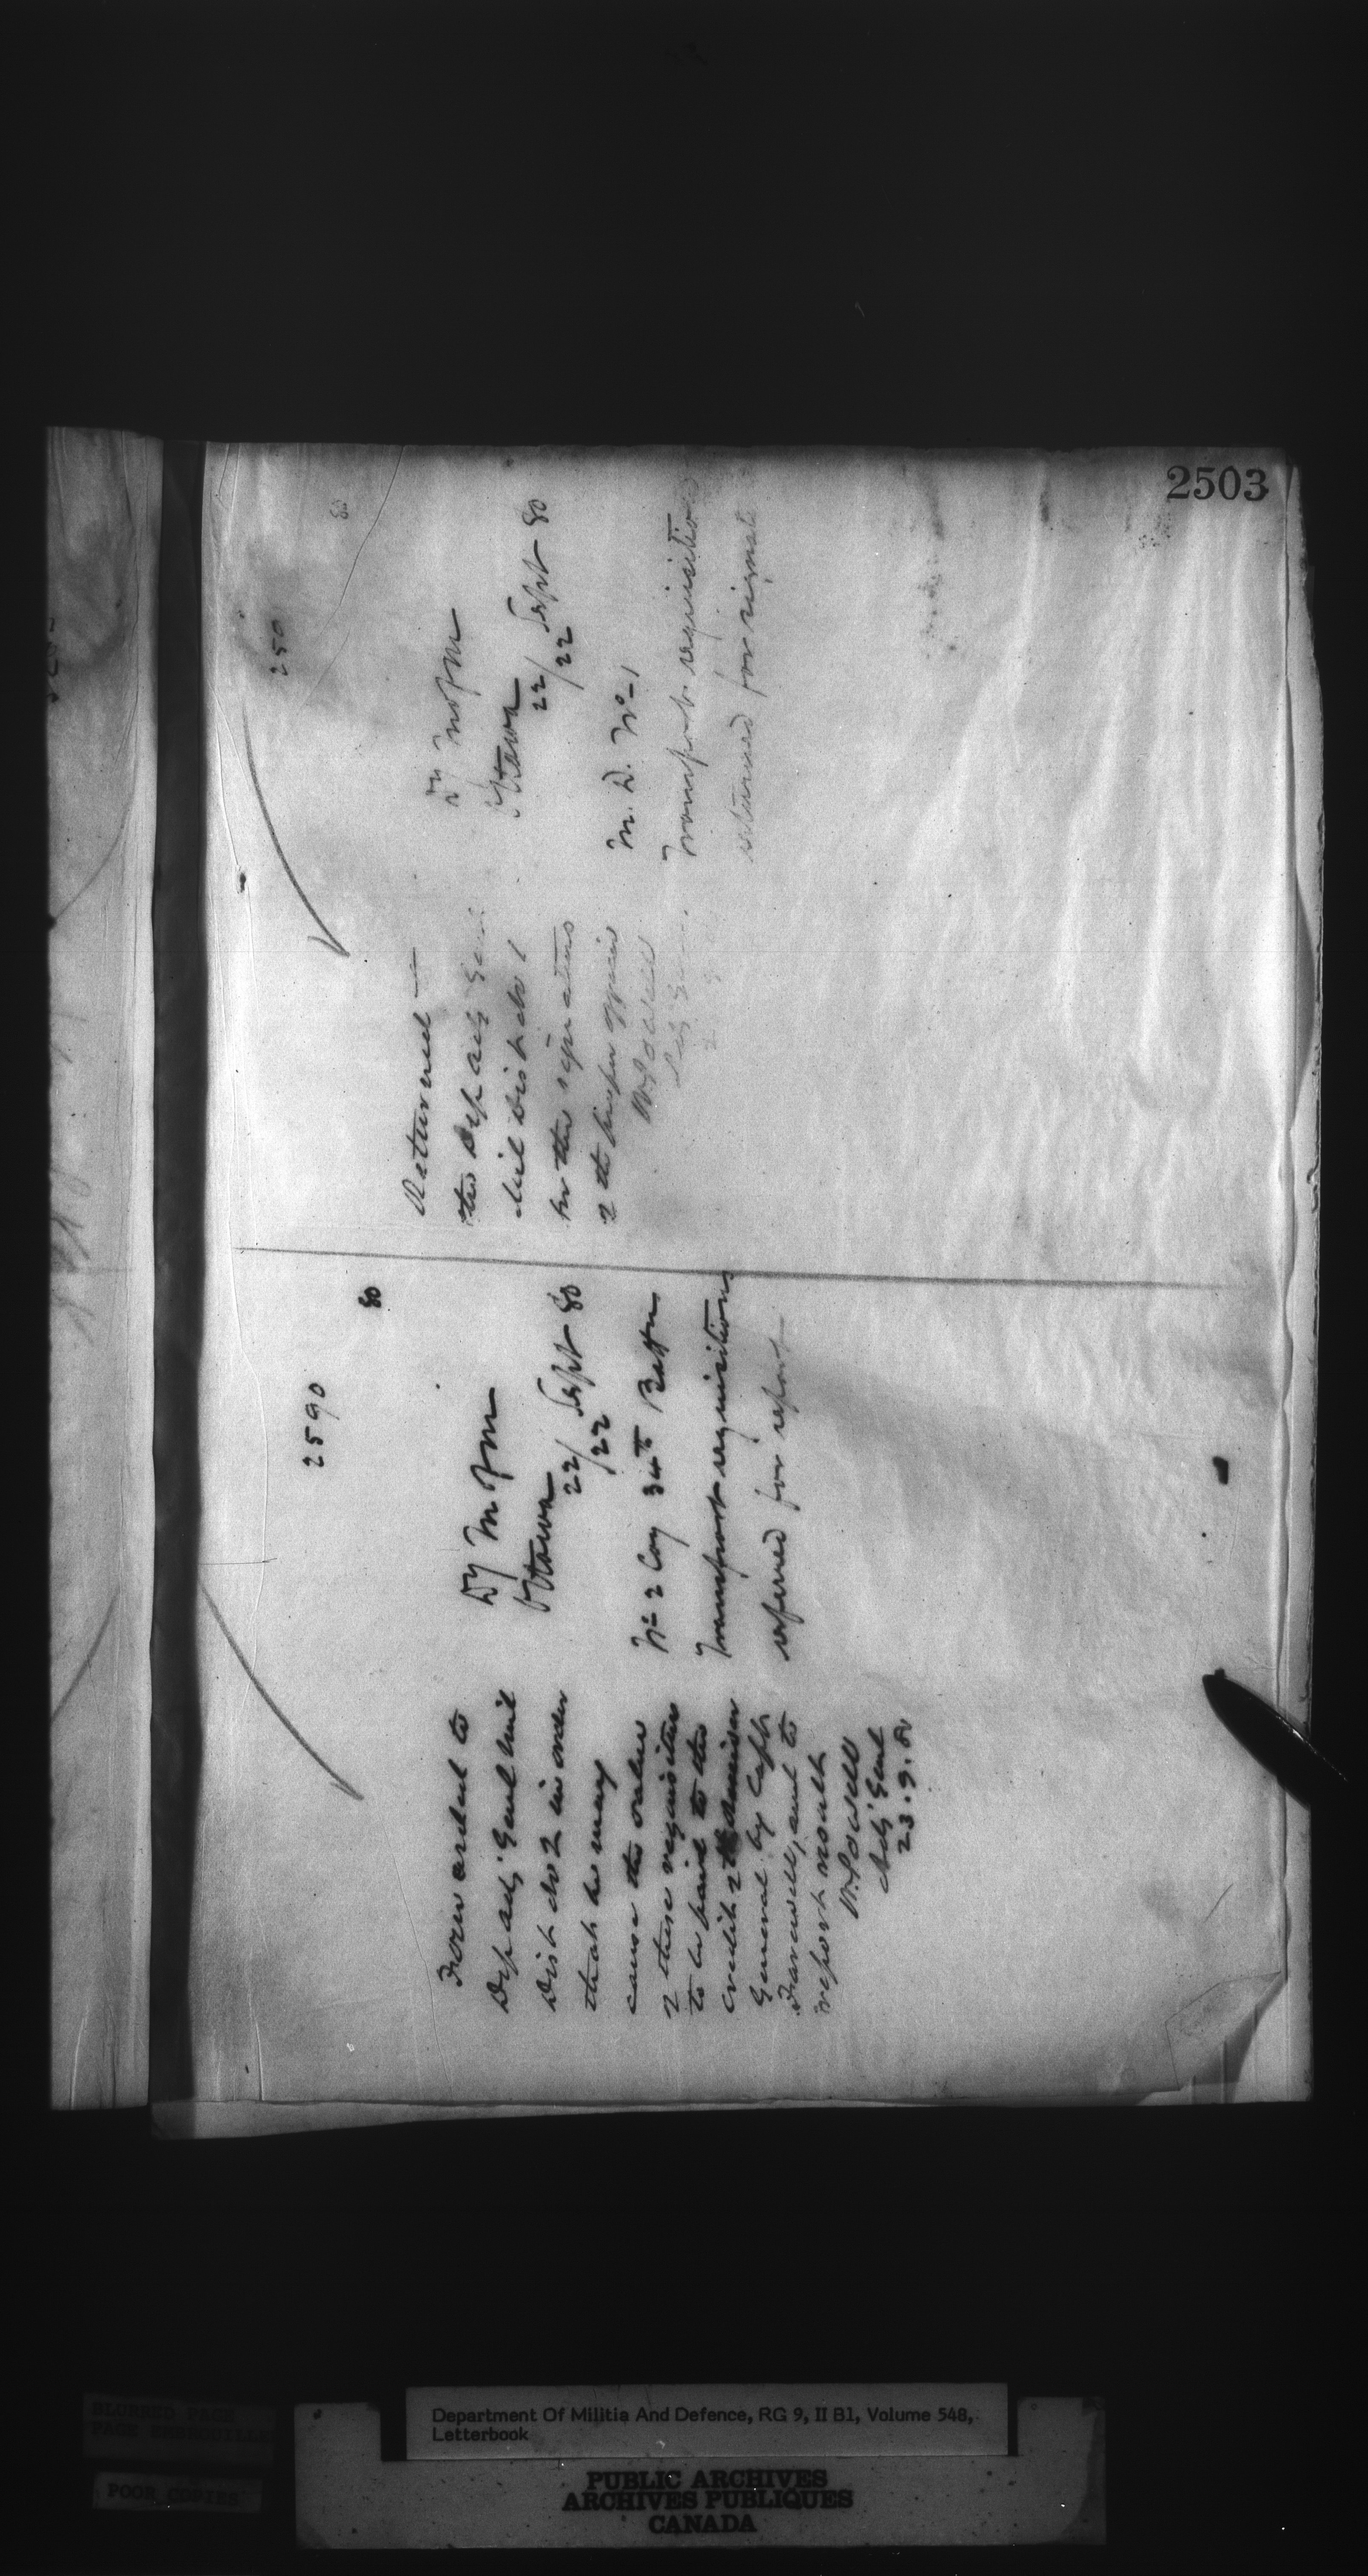 2503
2590
80
Dy M of M
Ottawa
22/22 Sept 80
No 2 Coy 34th Battn
Transport requisitions
referred for report
Forwarded to
Dep Adj Genl Mil
Dist No 2 in order
that he may
cause the value
of these requisitions
to be paid to the
credit of the Receiver
General by Capt
Farewell, and to
report result
W. Powell
Adj Genl
23.9.80
250
80
Dy M of M
Ottawa
22/22 Sept 80
M. D. No 1
Transport requisitions
returned for signat
Returned
the Dep Adj Genl
Mil District No 1
for the signatures
of the proper officers
W. Powell
Adj Gen
Department Of Militia And Defence, RG 9, II B1, Volume 548,
Letterbook
BLURRED PAGE
PAGE EMBROUILLEE
POOR COPIES
PUBLIC ARCHIVES
ARCHIVES PUBLIQUES
CANADA